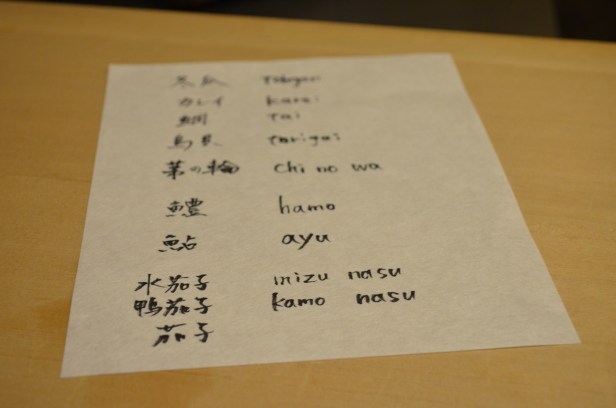 冬瓜 tougan
カレイ karei
鯛 tai
鳥貝 torigai
茅の輪 chi no wa
鱧 hamo
鮎 ayu
水茄子 mizu nasu
鴨茄子 kamo nasu
茄子